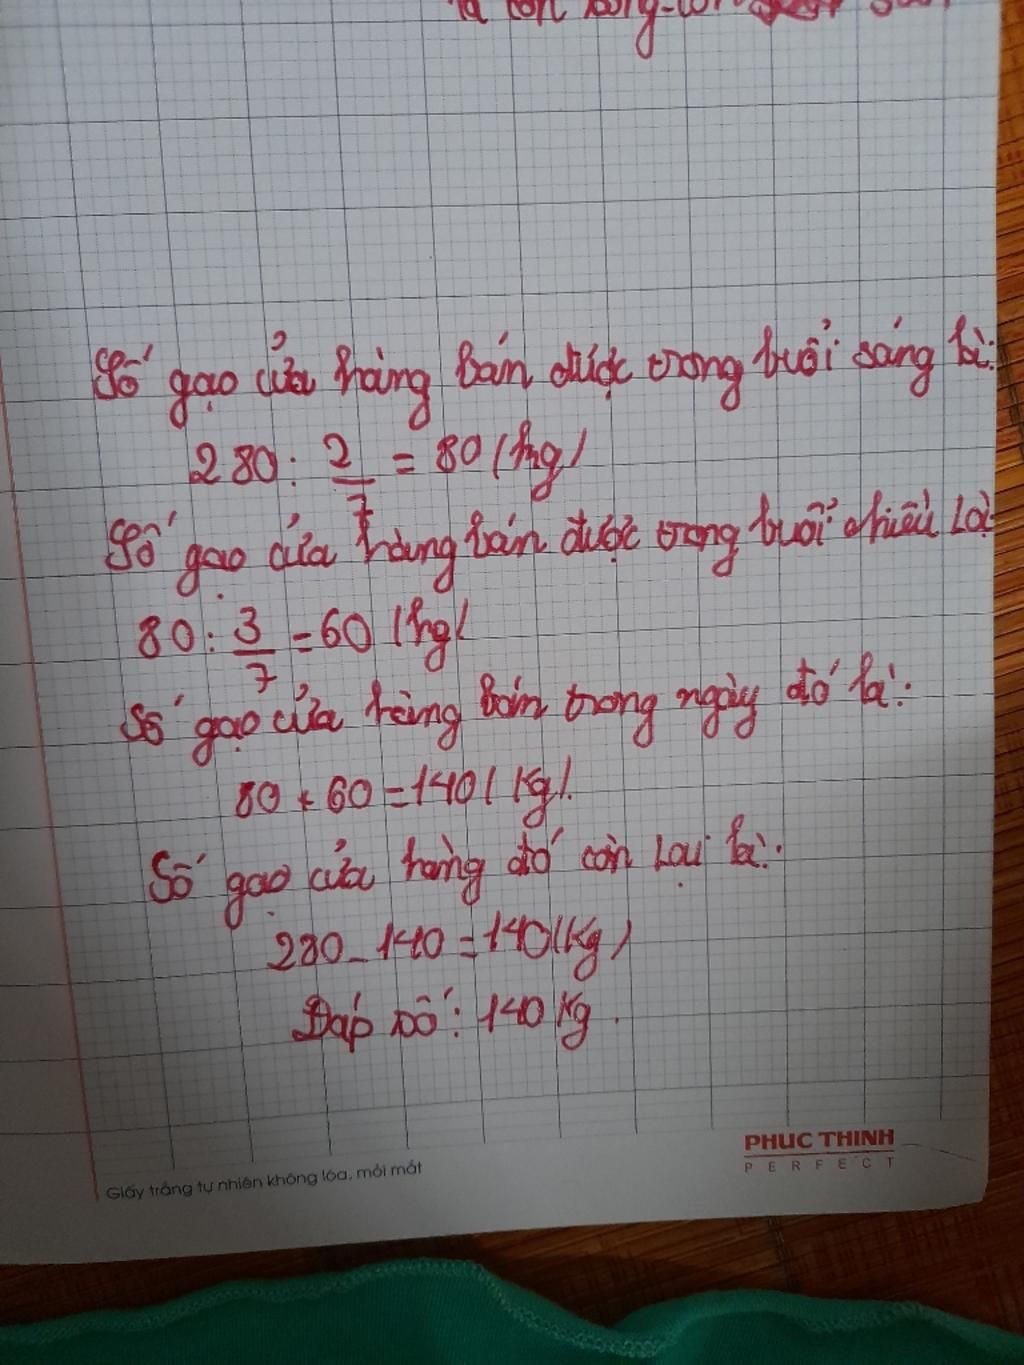 Số gạo cửa hàng bán được trong buổi sáng là:
280 : 2/7 = 80 (kg)
Số gạo cửa hàng bán được trong buổi chiều là:
80 : 3/7 = 60 (kg)
Số gạo cửa hàng bán trong ngày đó là:
80 + 60 = 140 (kg).
Số gạo cửa hàng đó còn lại là:
280 - 140 = 140 (kg)
Đáp số: 140 kg.
PHUC THINH
PERFECT
Giấy trắng tự nhiên không lóa, mỏi mắt